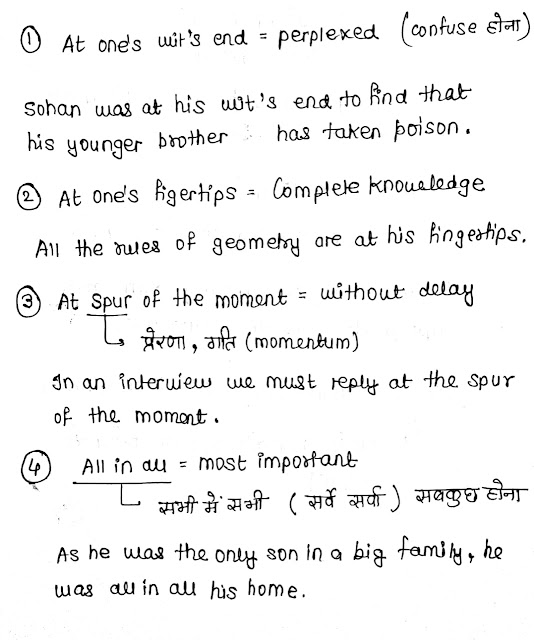 ① At one's wit's end = perplexed (confuse होना)
Sohan was at his wit's end to find that
his younger brother has taken poison.
② At one's figertips = Complete knowledge
All the rules of geometry are at his fingertips.
③ At spur of the moment = without delay
प्रेरणा, गति (momentum)
In an interview we must reply at the spur
of the moment.
④ All in all = most important
सभी में सभी (सर्वे सर्वा) सबकुछ होना
As he was the only son in a big family, he
was all in all his home.